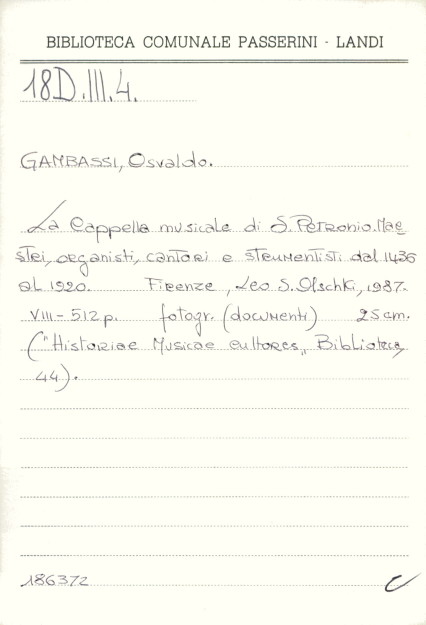 BIBLIOTECA COMUNALE PASSERINI - LANDI
18D.III.4.
GAMBASSI, Osvaldo.
La Cappella musicale di S. Petronio. Mae
stri, organisti, cantori e strumentisti dal 1436
al 1920. Firenze, Leo S. Olschki, 1987.
VIII - 512 p. fotogr. (documenti) 25 cm.
("Historiae Musicae cultores„ Biblioteca,
44).
186372